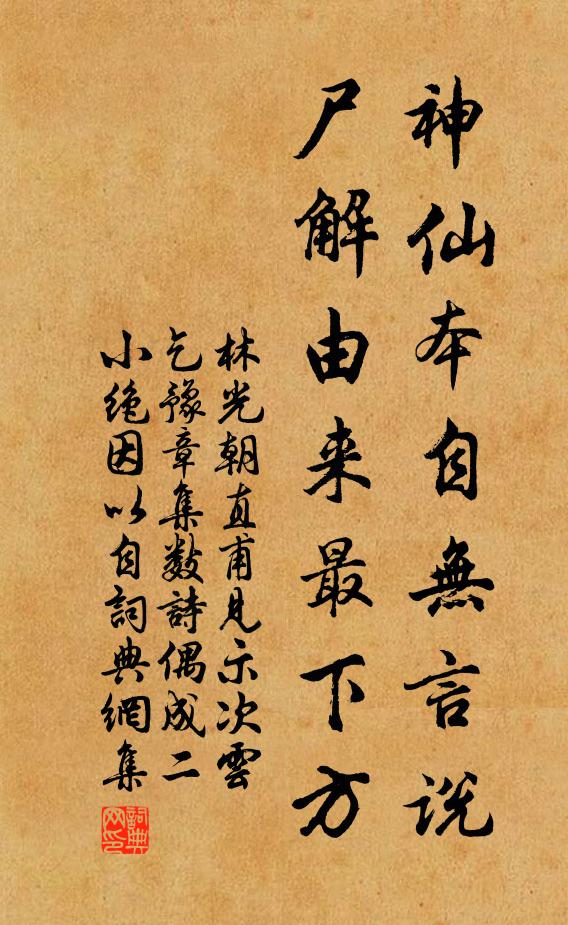 神仙本自無言説
尸解由来最下方
林光朝直甫見示次雲
乞豫章集数詩偶成二
小绝因以自詞典網集
詞典网印